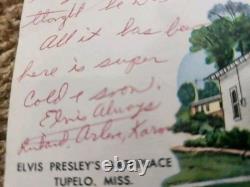 All it has been
here is super
cold & soon.
Elvis Always
Richard, Arlene, Karen
ELVIS PRESLEY'S BIRTHPLACE
TUPELO, MISS.